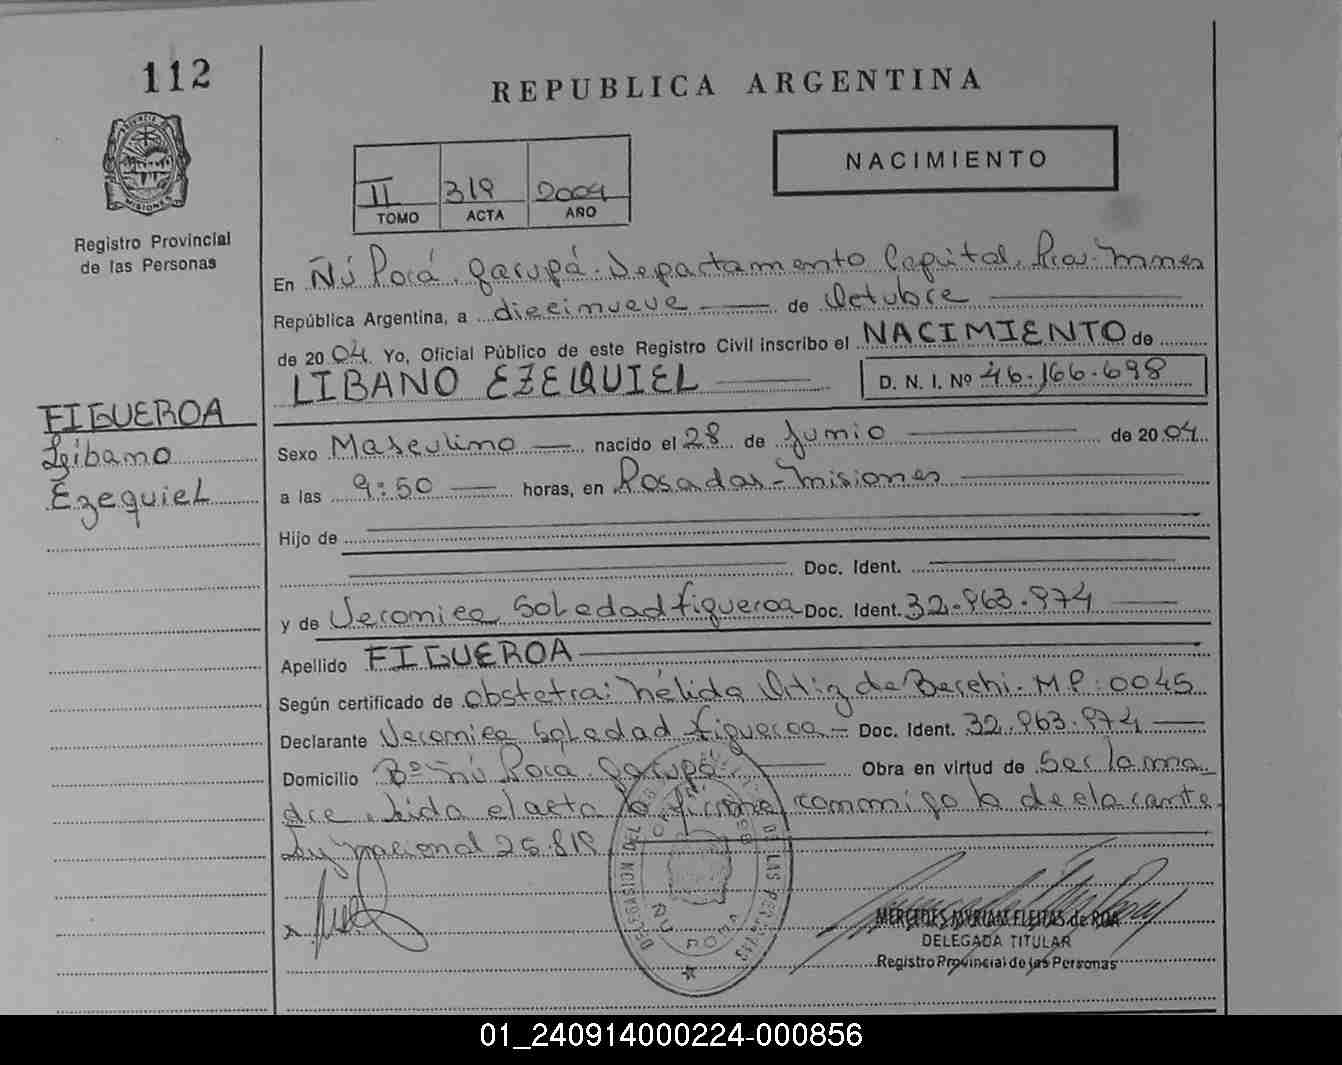 112
REPUBLICA ARGENTINA
NACIMIENTO
II 319 2004
TOMO ACTA AÑO
PROVINCIA DE MISIONES
Registro Provincial
de las Personas
En Ñú Porá. Garupá. Departamento Capital. Prov. Mnes
República Argentina, a diecinueve de Octubre
de 2004 Yo, Oficial Público de este Registro Civil inscribo el NACIMIENTO de
LIBANO EZEQUIEL D. N. I. Nº 46.166.698
FIGUEROA
Libano
Ezequiel
Sexo Masculino nacido el 28 de Junio de 2004
a las 9:50 horas, en Posadas - Misiones
Hijo de
Doc. Ident.
y de Veronica Soledad Figueroa Doc. Ident. 32.963.974
Apellido FIGUEROA
Según certificado de Obstetra: Nélida Ortiz de Berchi. M.P: 0045
Declarante Veronica Soledad Figueroa - Doc. Ident. 32.963.974
Domicilio Bº Ñú Porá. Garupá Obra en virtud de Ser la ma
dre. Leida el acta la firma conmigo la declarante.
Ley Nacional 25.819
DELEGACION DEL DE LAS PERSONAS
ÑU PORA
MERCEDES MYRIAM FLEITAS de ROA
DELEGADA TITULAR
Registro Provincial de las Personas
01_240914000224-000856